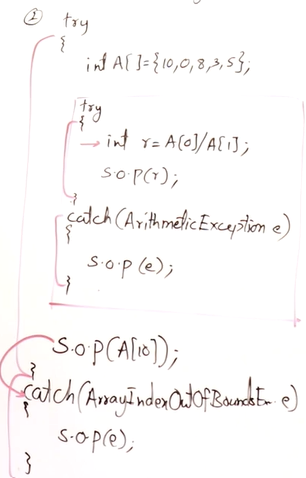 ② try
{
int A[]={10,0,8,3,5};
try
{
int r=A[0]/A[1];
S.O.P(r);
}
catch(ArithmeticException e)
{
S.O.P(e);
}
S.O.P(A[10]);
}
catch(ArrayIndexOutOfBoundsEx. e)
{
S.O.P(e);
}